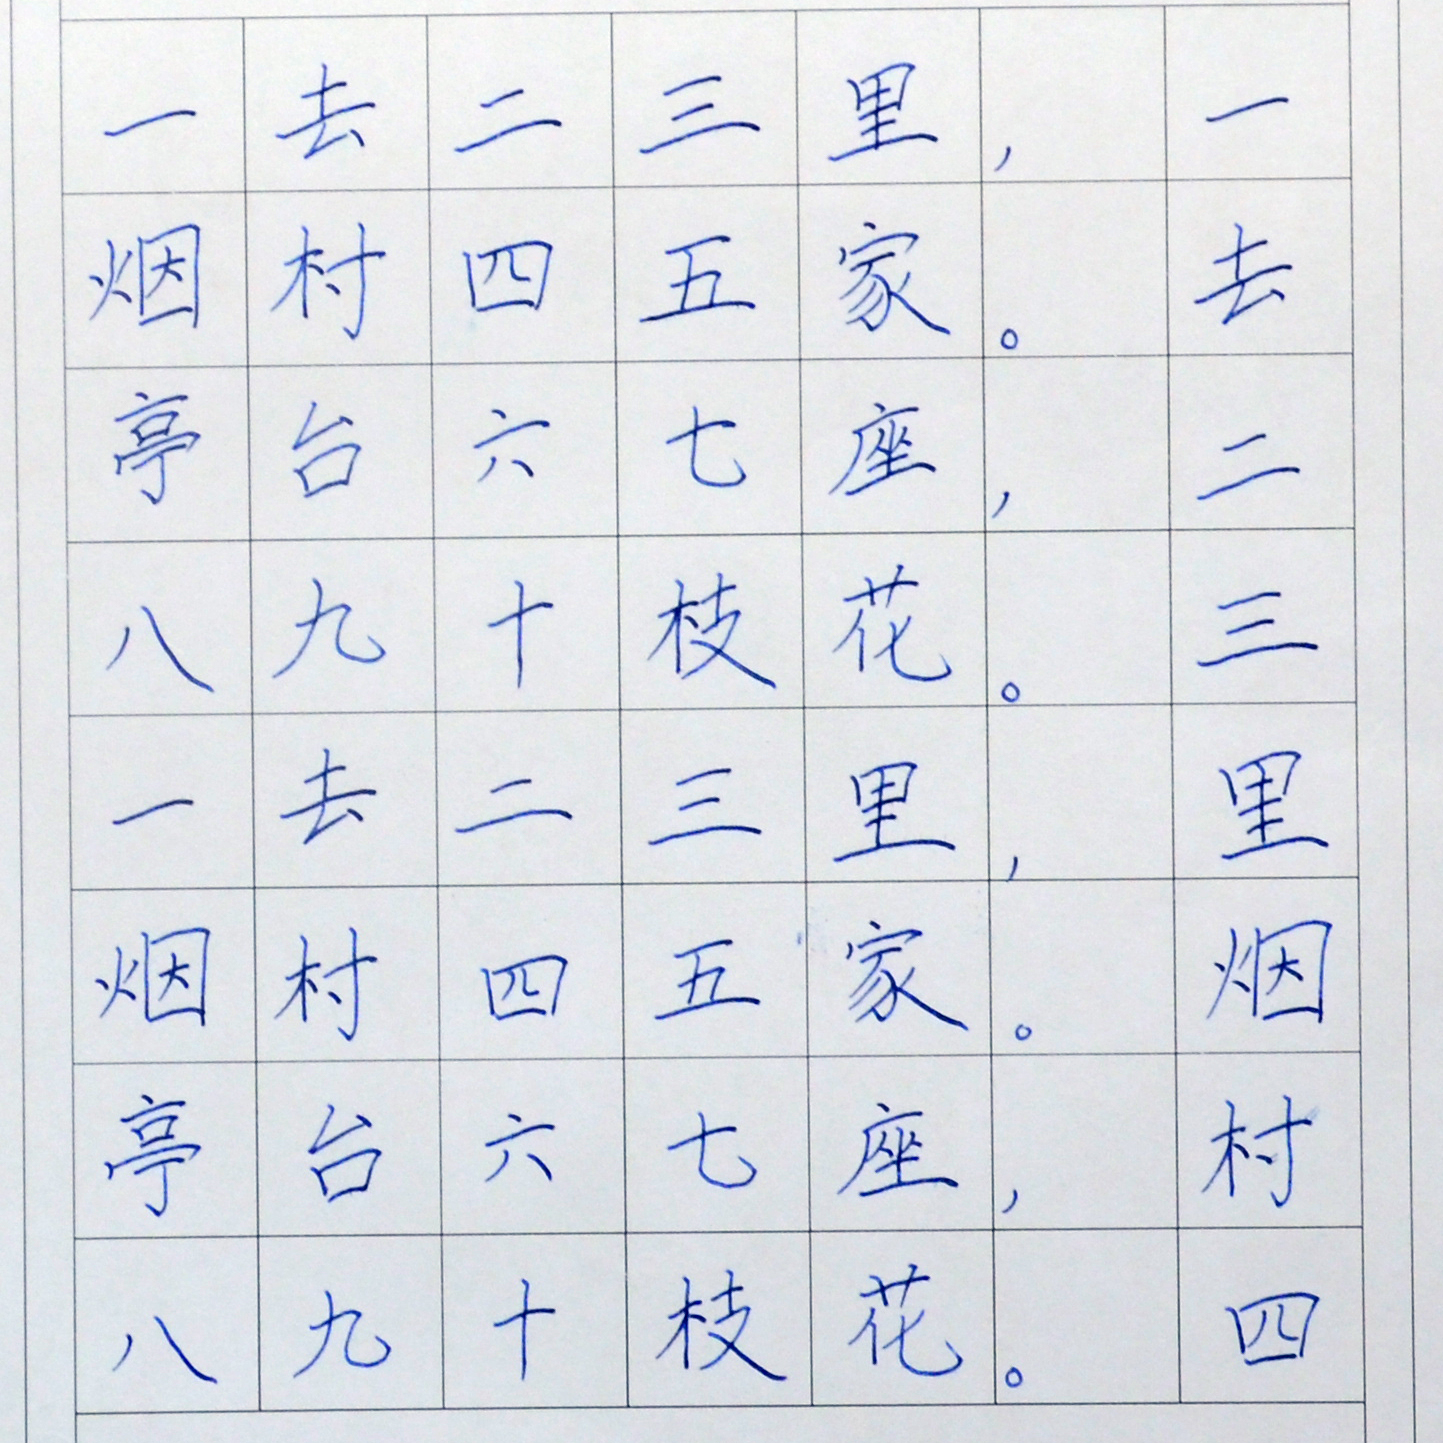 一去二三里，
烟村四五家。
亭台六七座，
八九十枝花。
一去二三里，
烟村四五家。
亭台六七座，
八九十枝花。
一去二三里烟村四